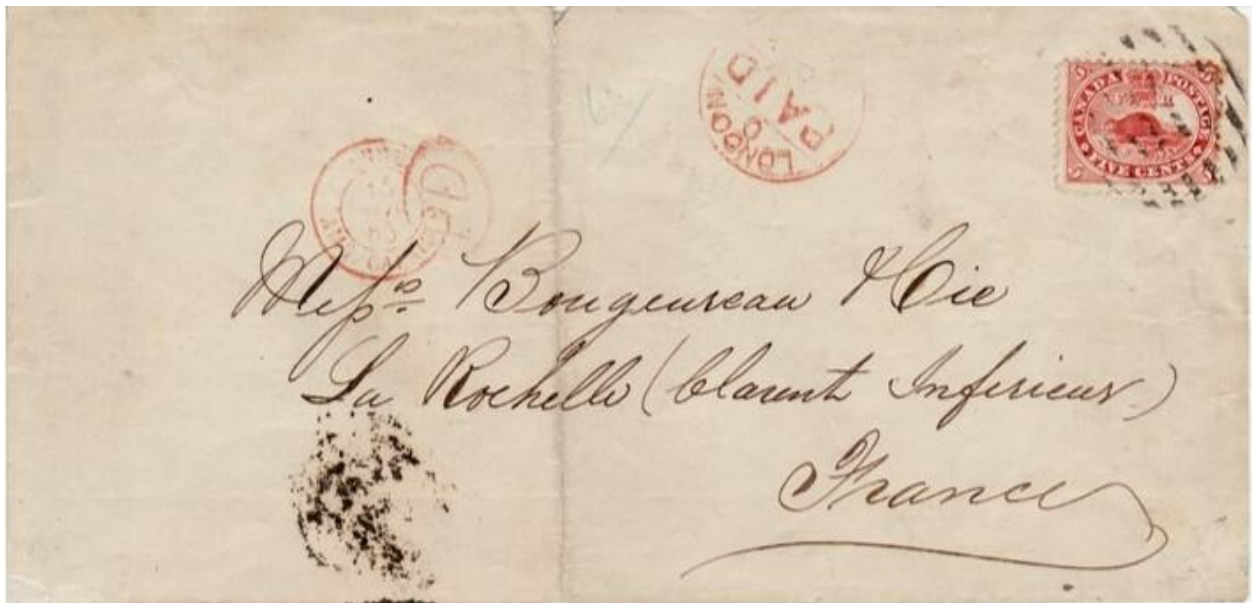 LONDON
PAID
CANADA POSTAGE
FIVE CENTS
5 5
Messrs. Bougeureau & Cie
La Rochelle (Clarent Inferieur)
France